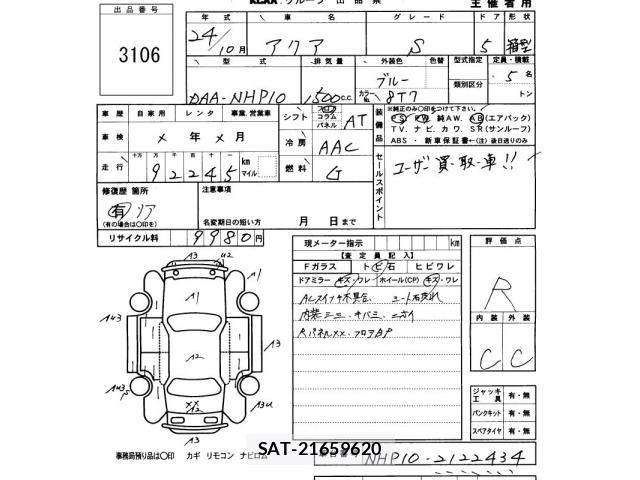 出品番号
3106
主催者用
年式 車名 グレード ドア 形状
24/10月 アクア S 5 箱型
型式 排気量 外装色 色替 型式指定 定員・積載
DAA-NHP10 1500c.c. ブルー カラーNo. 8T7 類別区分 5名
トン
車歴 自家用 レンタ 事業.営業車
シフト フロア コラム パネル AT
装備品 ※純正のみ〇印をつけて下さい。
PS PW 純AW. AB(エアバック)
TV. ナビ. カワ. SR(サンルーフ)
ABS ・ 新車保証書←(注)後日送りのみ
車検 × 年 × 月
冷房 AAC
走行 十万 万 千 百 十 一
92245 km マイル
燃料 G
セールスポイント ユーザー買取車!!
修復歴 箇所
有 リア
(有の場合は〇印を)
注意事項
名変期日の短い方 月 日まで
リサイクル料 9980円
現メーター指示 km
【査定員記入】
Fガラス ト ビ 石 ヒビワレ
ドアミラー キズ・ワレ ホイール(CP) キズ・ワレ
ACスイッチ不具合
評価点
R
内装 外装
C C
ジャッキ工具 有・無
パンクキット 有・無
スペアタイヤ 有・無
A3 U2
A1
A1
AU3 A2 A3
AU3 XX A2 A3U
A3
事務局預り品は〇印 カギ リモコン ナビロム
SAT-21659620
NHP10-2122434